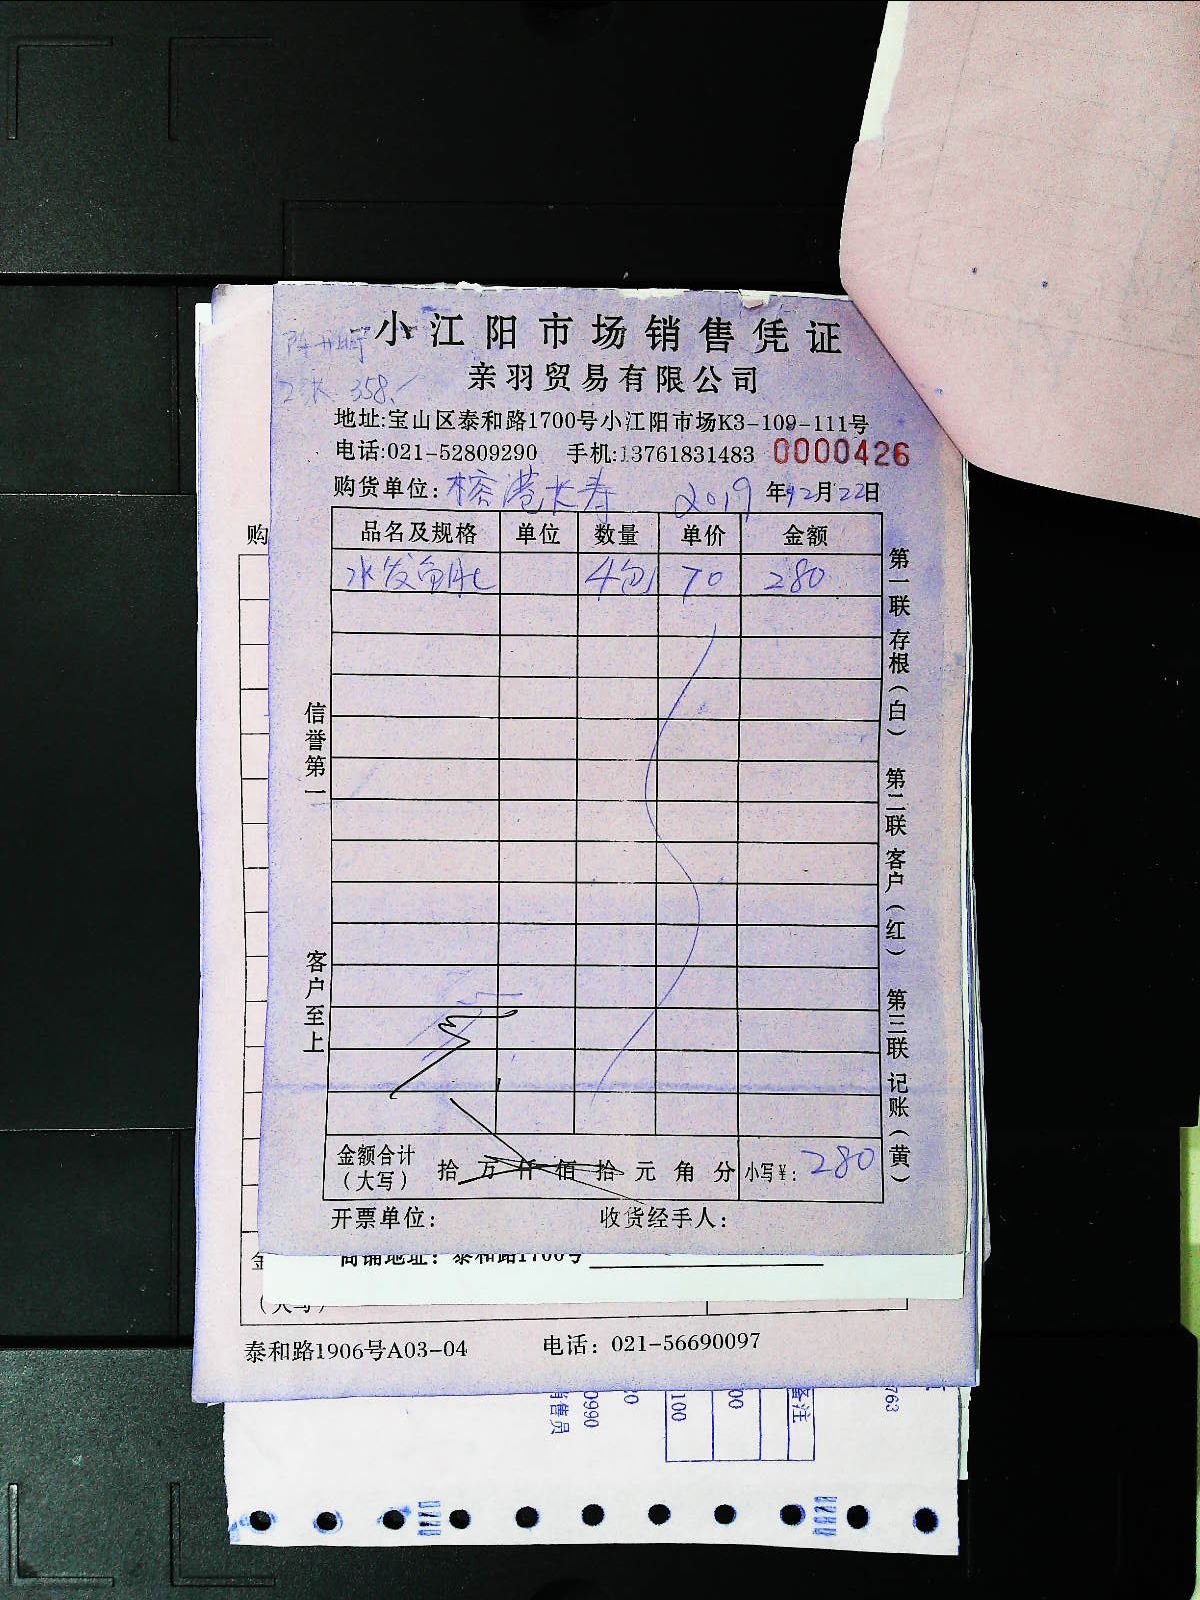 小江阳市场销售凭证
亲羽贸易有限公司
358.
地址:宝山区泰和路1700号小江阳市场K3-109-111号
电话:021-52809290 手机:13761831483 0000426
购货单位: 榕港长寿 2019年12月22日
购
品名及规格 单位 数量 单价 金额
水发鱼肚 4包 70 280
第一联 存根(白) 第二联 客户(红) 第三联 记账(黄)
信誉第一
客户至上
金额合计(大写) 拾 万 仟 佰 拾 元 角 分 小写¥: 280
开票单位: 收货经手人:
商铺地址: 泰和路1700号
金
(大写)
泰和路1906号A03-04 电话: 021-56690097
销售员
0990
20
100
00
备注
763